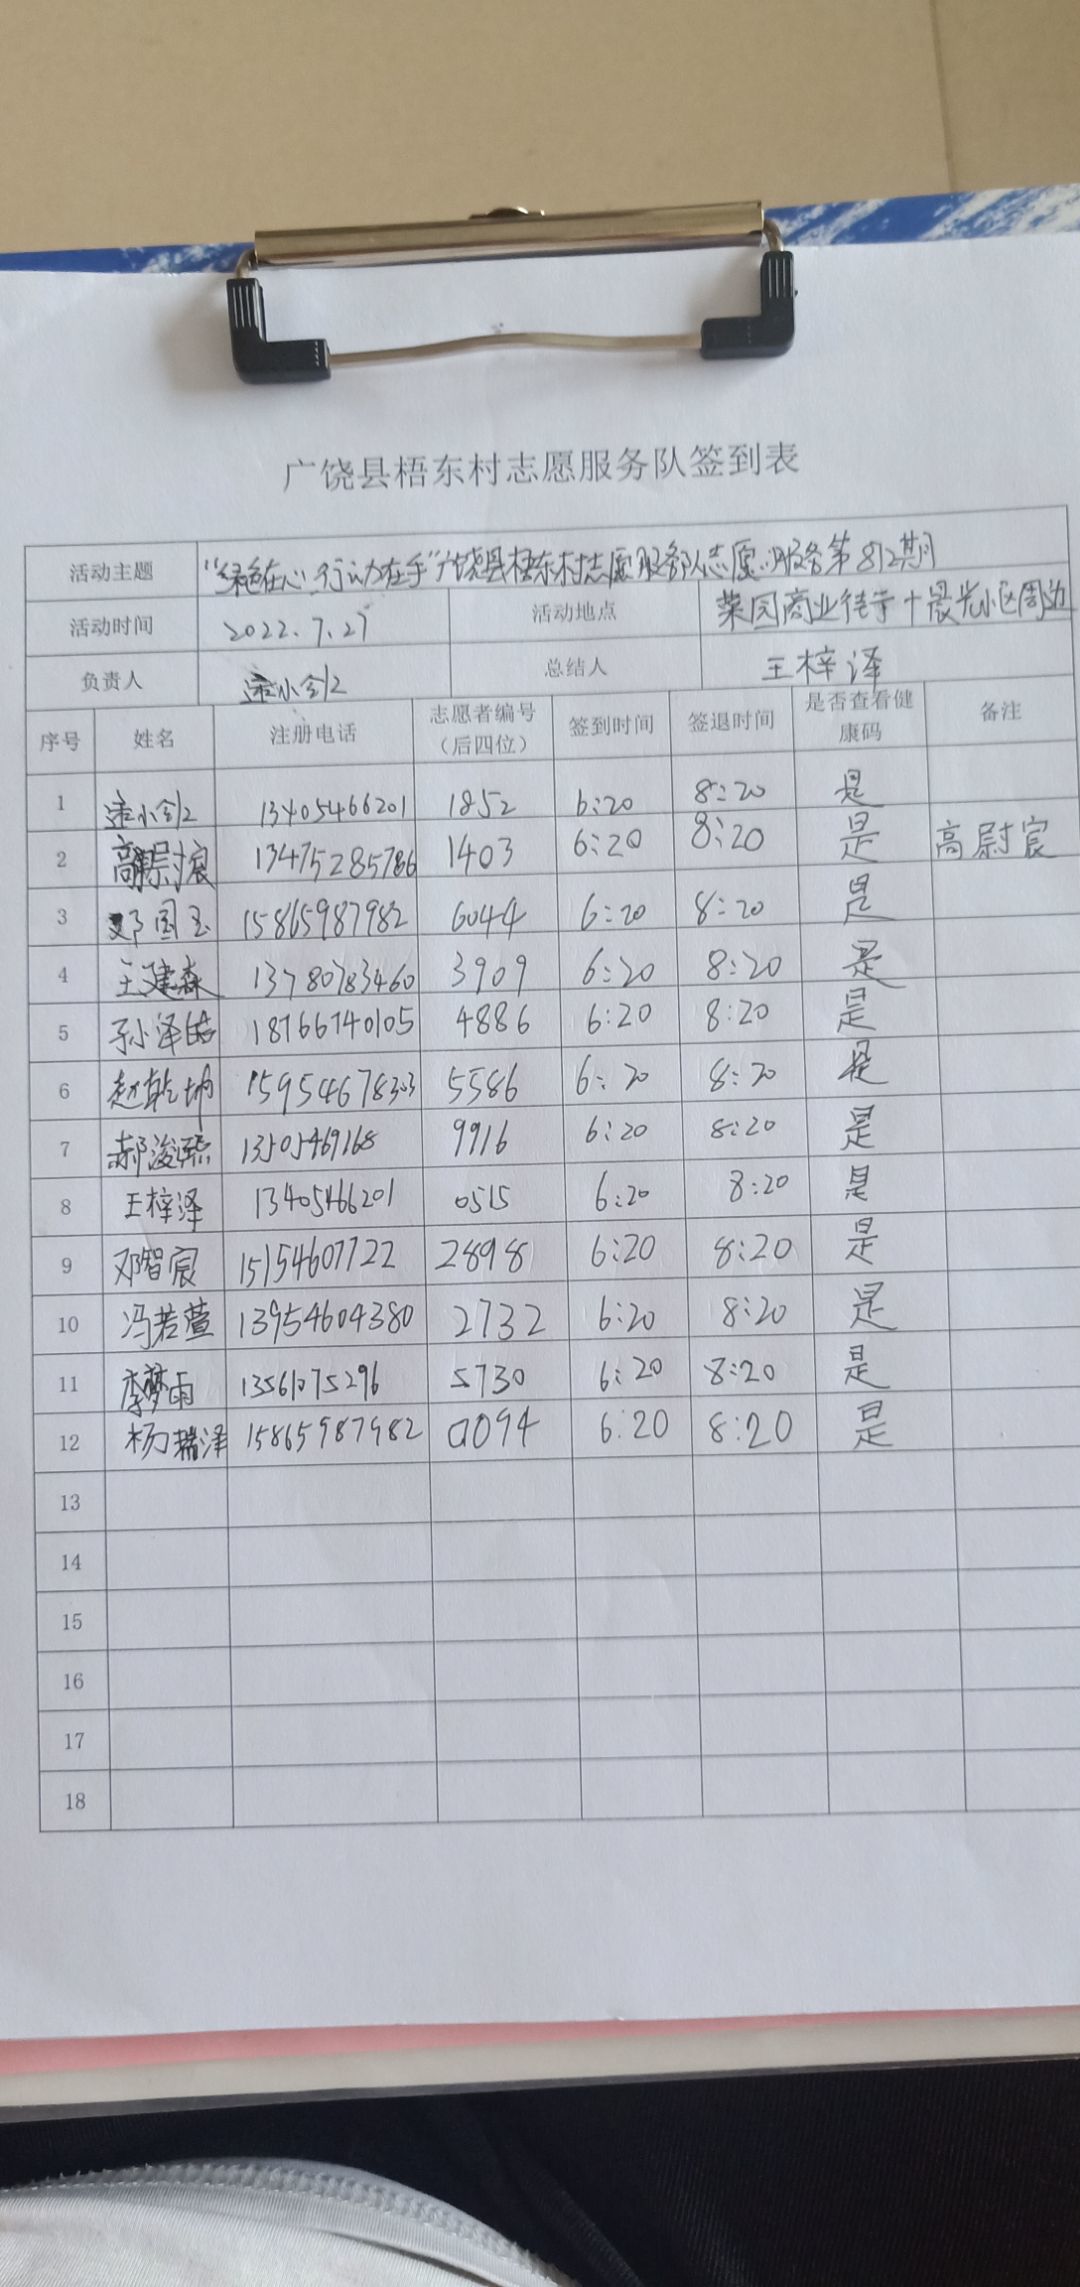 广饶县梧东村志愿服务队签到表
活动主题 "绿色在心 行动在手"广饶县梧东村志愿服务队志愿服务第812期
活动时间 2022.7.27 活动地点 菜园商业街等十晨光小区周边
负责人 总结人 王梓泽
序号 姓名 注册电话 志愿者编号（后四位） 签到时间 签退时间 是否查看健康码 备注
1 13405466201 1852 6:20 8:20 是
2 高尉宸 13475285786 1403 6:20 8:20 是 高尉宸
3 邓国玉 15865987982 6044 6:20 8:20 是
4 王建森 13780783460 3909 6:20 8:20 是
5 孙泽皓 18766740105 4886 6:20 8:20 是
6 赵乾坤 15954678303 5586 6:20 8:20 是
7 郝浚熙 13505469168 9916 6:20 8:20 是
8 王梓泽 13405466201 0515 6:20 8:20 是
9 邓智宸 15154607722 2898 6:20 8:20 是
10 冯若萱 13954604380 2732 6:20 8:20 是
11 李梦雨 13561075296 5730 6:20 8:20 是
12 杨瑞泽 15865987982 0094 6:20 8:20 是
13
14
15
16
17
18